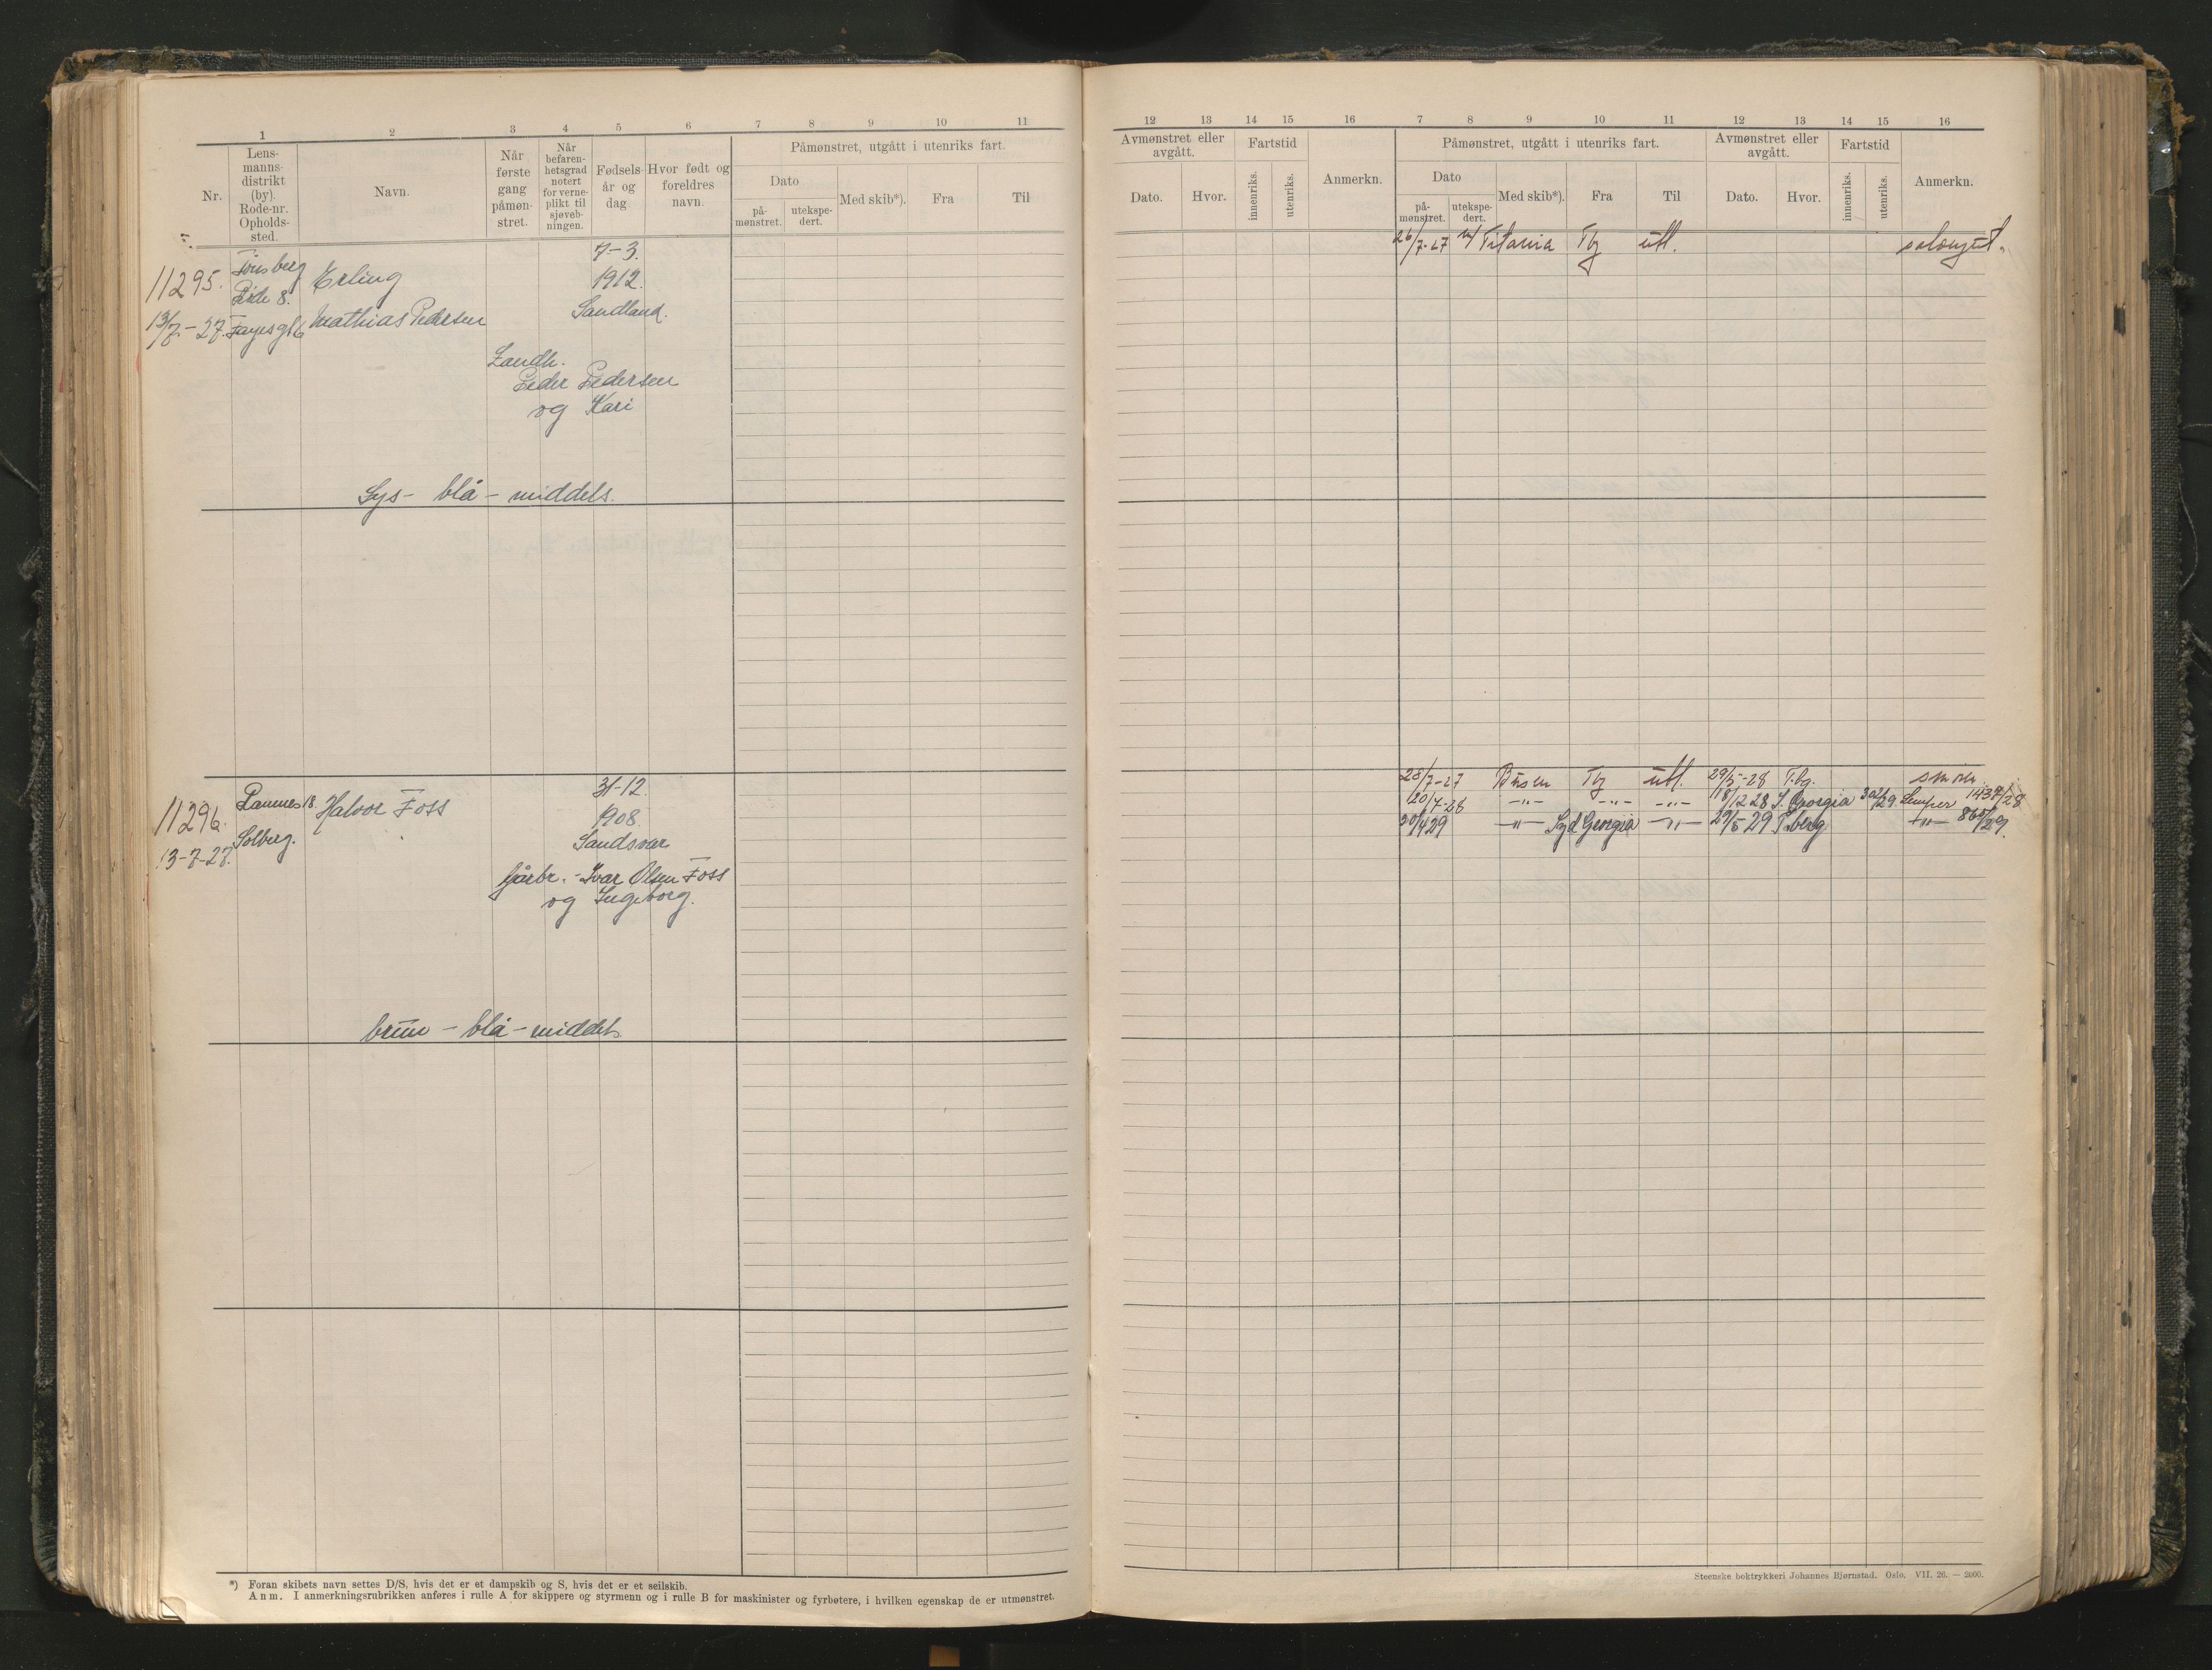 1 2 3 4 5 6 7 8 9 10 11
Nr.
Lens-
manns-
distrikt
(by).
Rode-nr.
Opholds-
sted.
Navn.
Når
første
gang
påmøn-
stret.
Når
befaren-
hetsgrad
notert
for verne-
plikt til
sjøveb-
ningen.
Fødsels-
år og
dag
Hvor født og
foreldres
navn.
Påmønstret, utgått i utenriks fart.
Dato
på-
mønstret.
utekspe-
dert.
Med skib*).
Fra
Til
Tønsberg
11295.
Rode 8.
Erling
7-3.
1912.
13/7.-27.
Mathias Pedersen
Sandland.
Peder Pedersen
og Kari
Lys- blå - middels.
11296.
Ramnes 18.
Halvor Foss
31-12.
1908.
Solberg.
Sandsvær
13-7-27.
Gårbr. - Ivar Olsen Foss
og Ingeborg.
brun - blå - middels
*) Foran skibets navn settes D/S, hvis det er et dampskib og S, hvis det er et seilskib.
Anm. I anmerkningsrubrikken anføres i rulle A for skippere og styrmenn og i rulle B for maskinister og fyrbøtere, i hvilken egenskap de er utmønstret.
12 13 14 15 16 7 8 9 10 11 12 13 14 15 16
Avmønstret eller
avgått.
Dato.
Hvor.
Fartstid
innenriks.
utenriks.
Anmerkn.
Påmønstret, utgått i utenriks fart.
Dato
på-
mønstret.
utekspe-
dert.
Med skib*).
Fra
Til
Avmønstret eller
avgått.
Dato.
Hvor.
Fartstid
innenriks.
utenriks.
Anmerkn.
26/7-27 M/ Titania Tbg utl. salongut.
28/7-27 Busen Tbg utl. 29/5-28 T.bg. smører
20/7-28 -"- -"- -"- 18/12 28 S. Georgia 302/29. Lemper 1437/28
20/4 29 -"- Syd Georgia -"- 29/5 29 T.berg -"- 860/29.
Steenske boktrykkeri Johannes Bjørnstad. Oslo. VII. 26. — 2000.